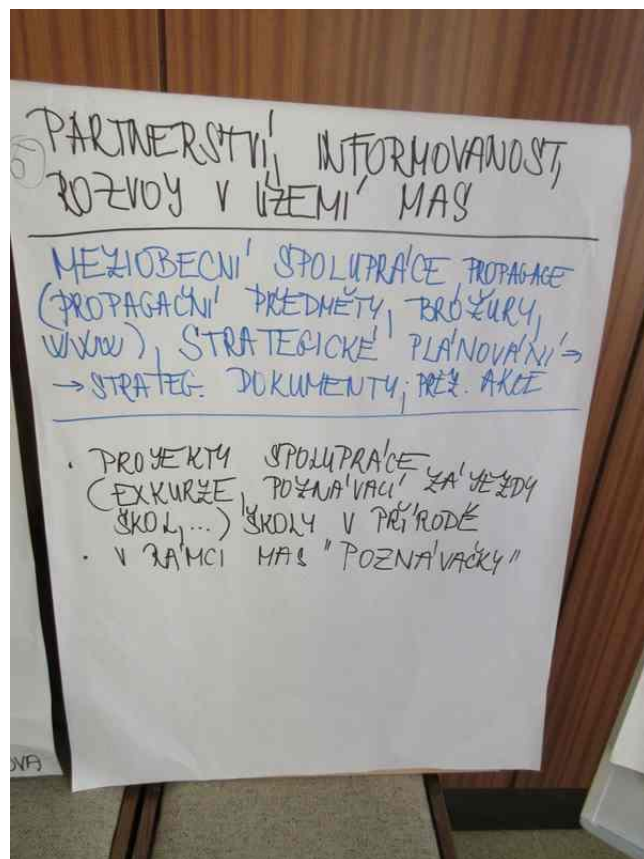 5
PARTNERSTVÍ, INFORMOVANOST,
ROZVOJ V ÚZEMÍ MAS
MEZIOBECNÍ SPOLUPRÁCE, PROPAGACE
(PROPAGAČNÍ PŘEDMĚTY, BROŽURY,
WWW), STRATEGICKÉ PLÁNOVÁNÍ →
→ STRATEG. DOKUMENTY, PREZ. AKCE
• PROJEKTY SPOLUPRÁCE
(EXKURZE, POZNÁVACÍ ZÁJEZDY
ŠKOL,...) ŠKOLY V PŘÍRODĚ
• V RÁMCI MAS "POZNÁVAČKY"
OVA